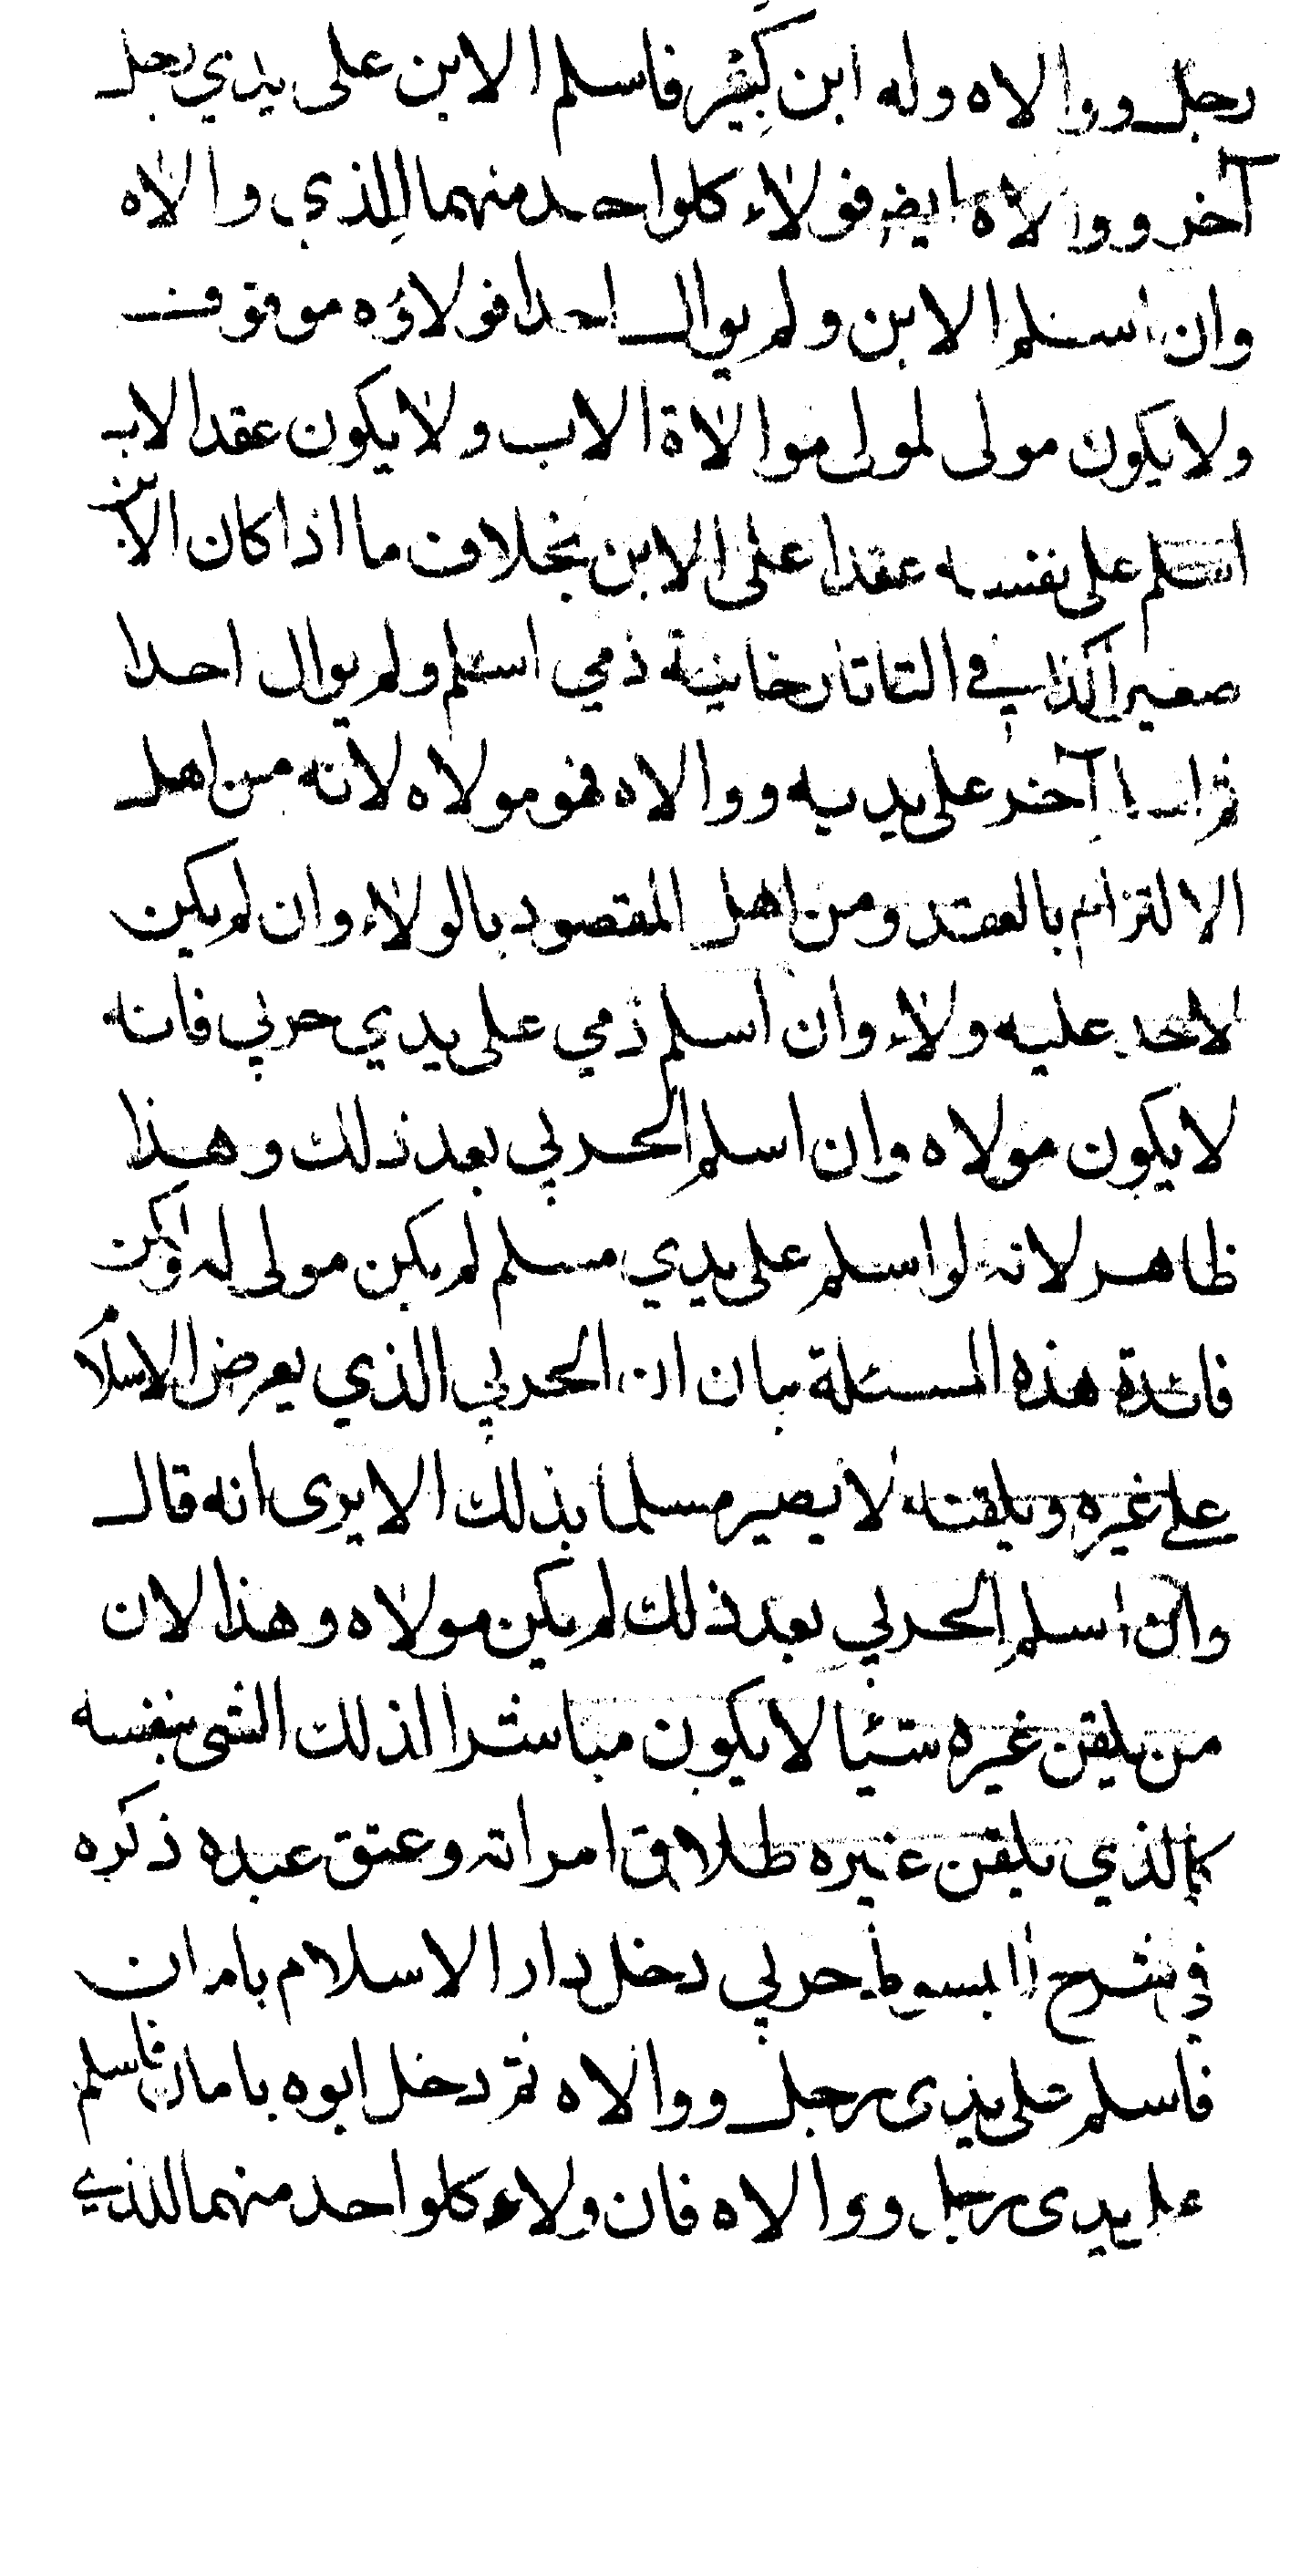 رجل ووالاه وله ابن كبير فاسلم الابن على يدي رجل
آخر ووالاه ايضا فولاء كلواحد منهما للذي والاه
وان اسلم الابن ولم يوال احدا فولاؤه موقوف
ولا يكون مولى لمولى موالاة الاب ولا يكون عقد الاب
اسلم على نفسه عقدا على الابن بخلاف ما اذا كان الابن
صغيرا كذا في التاتارخانية ذمي اسلم ولم يوال احدا
ثم اسلم آخر على يديه ووالاه فهو مولاه لانه من اهل
الالتزام بالعقد ومن اهل المقصود بالولاء وان لم يكن
لاحد عليه ولاء وان اسلم ذمي على يدي حربي فانه
لا يكون مولاه وان اسلم الحربي بعد ذلك وهذا
ظاهر لانه لو اسلم على يدي مسلم لم يكن مولى له ولكن
فائدة هذه المسئلة بيان ان الحربي الذي يعرض الاسلام
على غيره ويلقنه لا يصير مسلما بذلك الا يرى انه قال
وان اسلم الحربي بعد ذلك لم يكن مولاه وهذا لان
من يلقن غيره شيئا لا يكون مباشرا لذلك الشى بنفسه
كالذي يلقن غيره طلاق امراته وعتق عبده ذكره
في شرح المبسوط حربي دخل دار الاسلام بامان
فاسلم على يدى رجل ووالاه ثم دخل ابوه بامان فاسلم
على يدى رجل ووالاه فان ولاء كلواحد منهما للذي